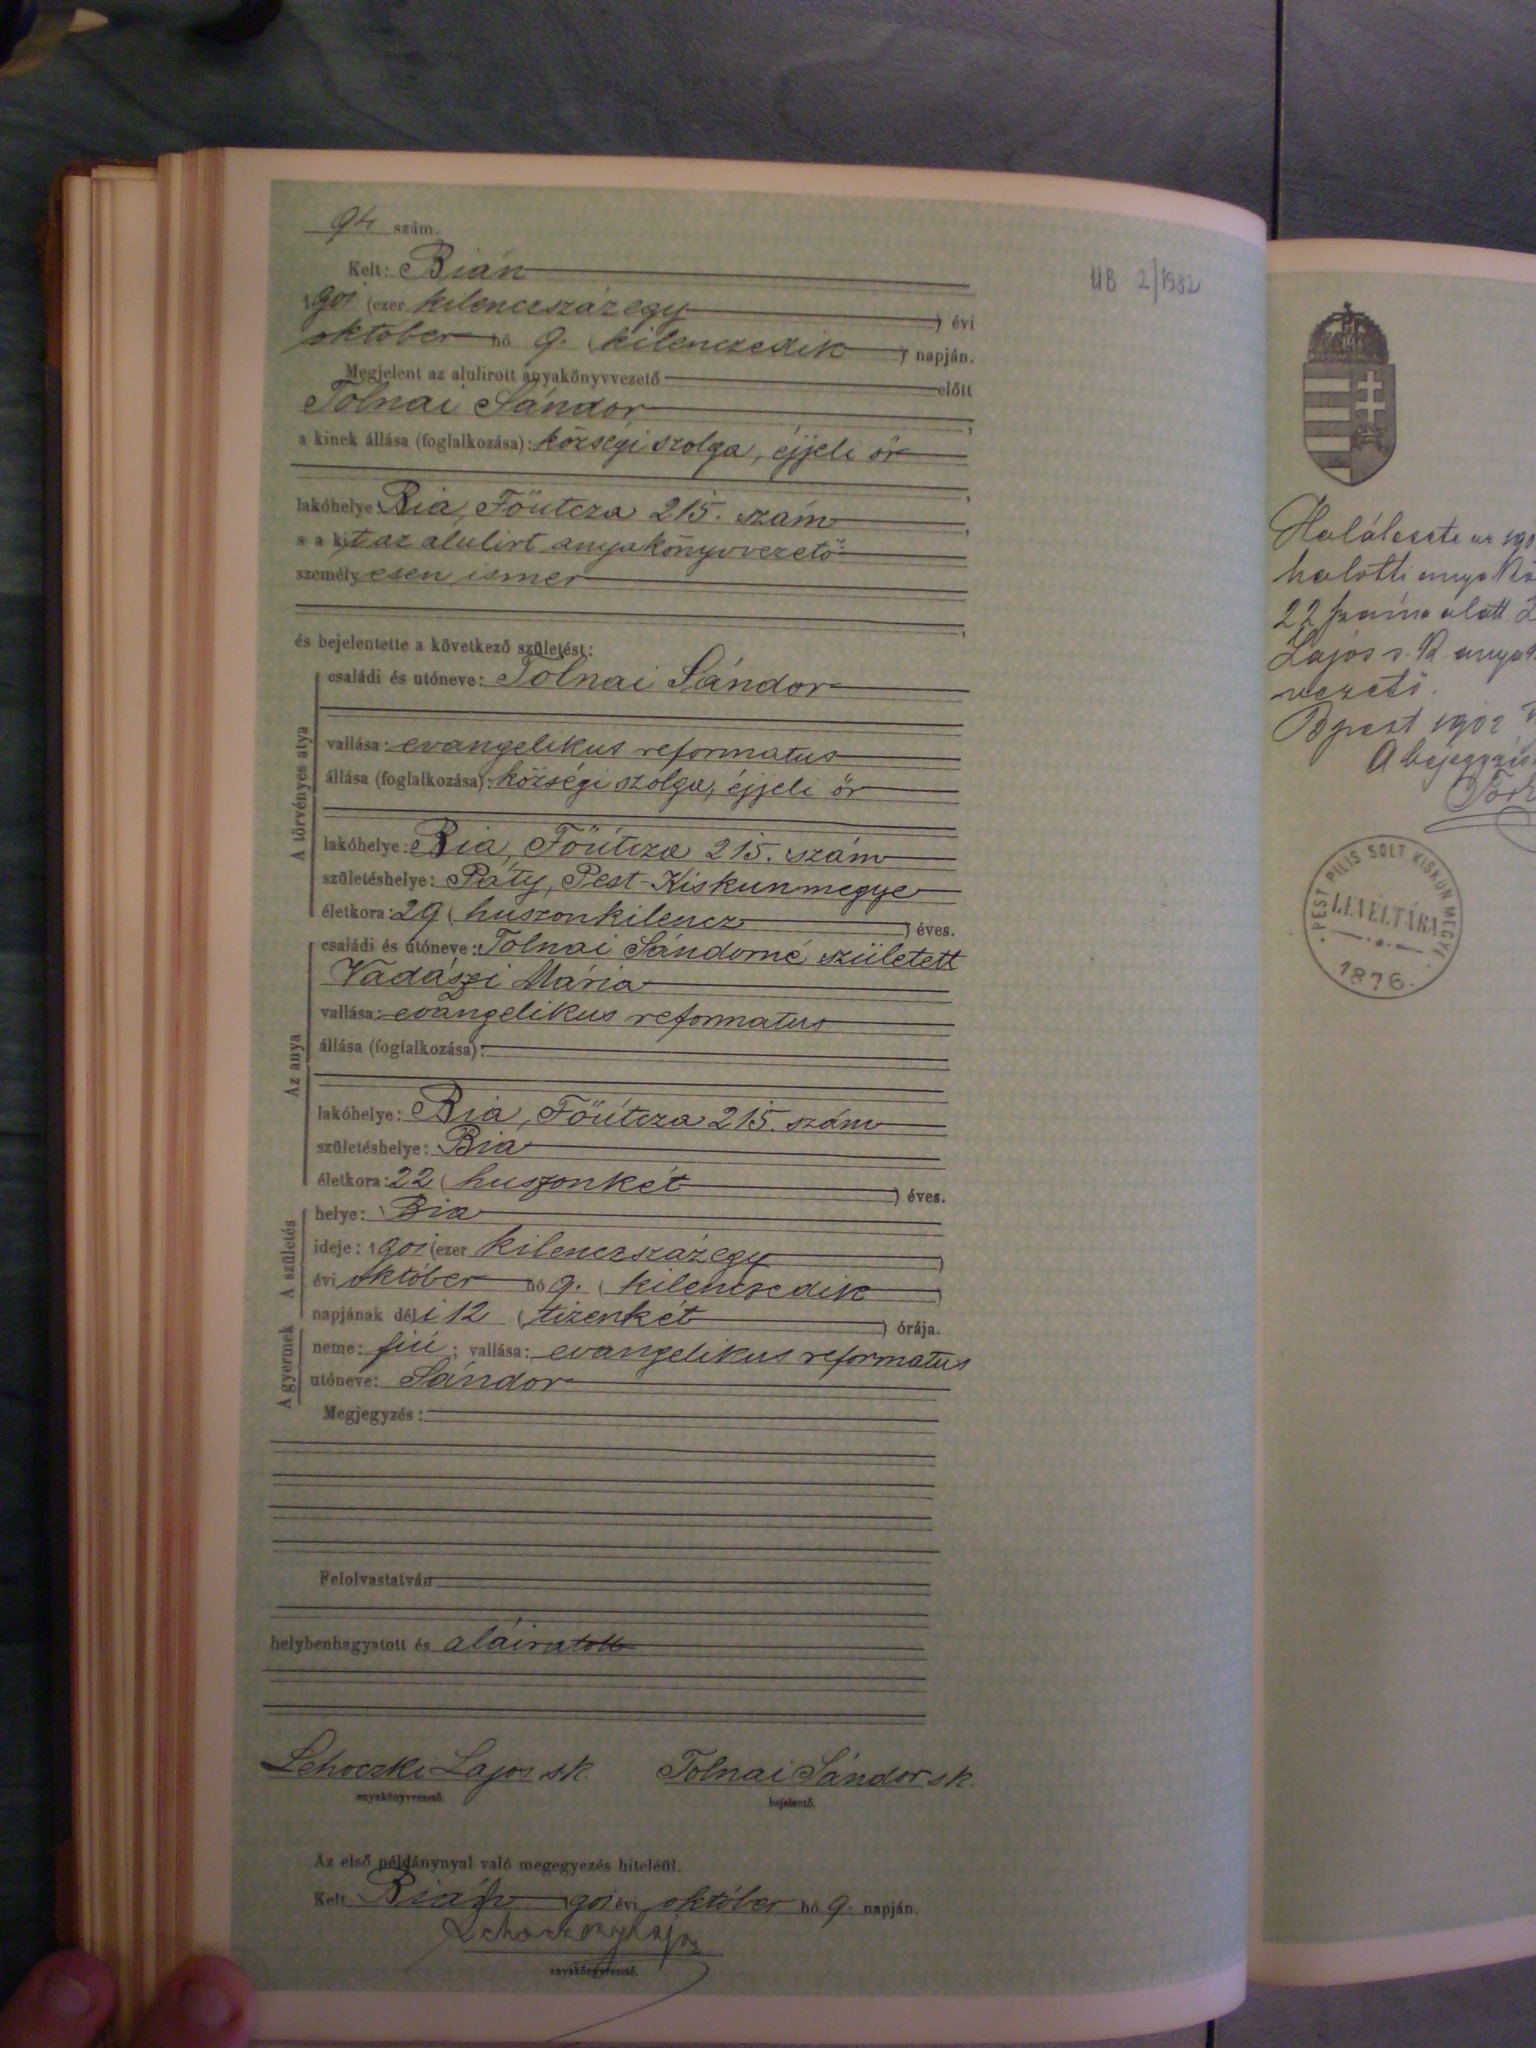 94 szám.
Kelt: Bián
1901 (ezer kilenczszázegy) évi
október hó 9. (kilenczedik) napján.
Megjelent az alulirott anyakönyvvezető előtt
Tolnai Sándor,
a kinek állása (foglalkozása): községi szolga, éjjeli őr
lakóhelye Bia, Főutcza 215. szám,
s a kit az alulirt anyakönyvvezető
személyesen ismer,
és bejelentette a következő születést:
A törvényes atya
családi és utóneve: Tolnai Sándor
vallása: evangelikus reformatus
állása (foglalkozása): községi szolga, éjjeli őr
lakóhelye: Bia, Főútcza 215. szám
születéshelye: Páty, Pest-Kiskunmegye
életkora: 29 (huszonkilencz) éves.
Az anya
családi és utóneve: Tolnai Sándorné született
Vadászi Mária
vallása: evangelikus reformatus
állása (foglalkozása):
lakóhelye: Bia, Főútcza 215. szám
születéshelye: Bia
életkora: 22 (huszonkét) éves.
A születés
helye: Bia
ideje: 1901 (ezer kilenczszázegy)
évi október hó 9. (kilenczedik)
napjának déli 12 (tizenkét) órája.
A gyermek
neme: fiú; vallása: evangelikus reformatus
utóneve: Sándor
Megjegyzés:
Felolvastatván
helybenhagyatott és aláiratott
Lehoczki Lajos sk. Tolnai Sándor sk.
anyakönyvvezető. bejelentő.
Az első példánynyal való megegyezés hiteléül.
Kelt Bián 1901 évi október hó 9. napján.
Lehoczky Lajos
anyakönyvvezető.
UB 2/1982
Halálesete az 190
halotti
22 száma alatt
Lajos s. k.
vezető.
Bpest 1902
A bejegyzés
PEST PILIS SOLT KISKUN MEGYE
LEVÉLTÁRA
1876.